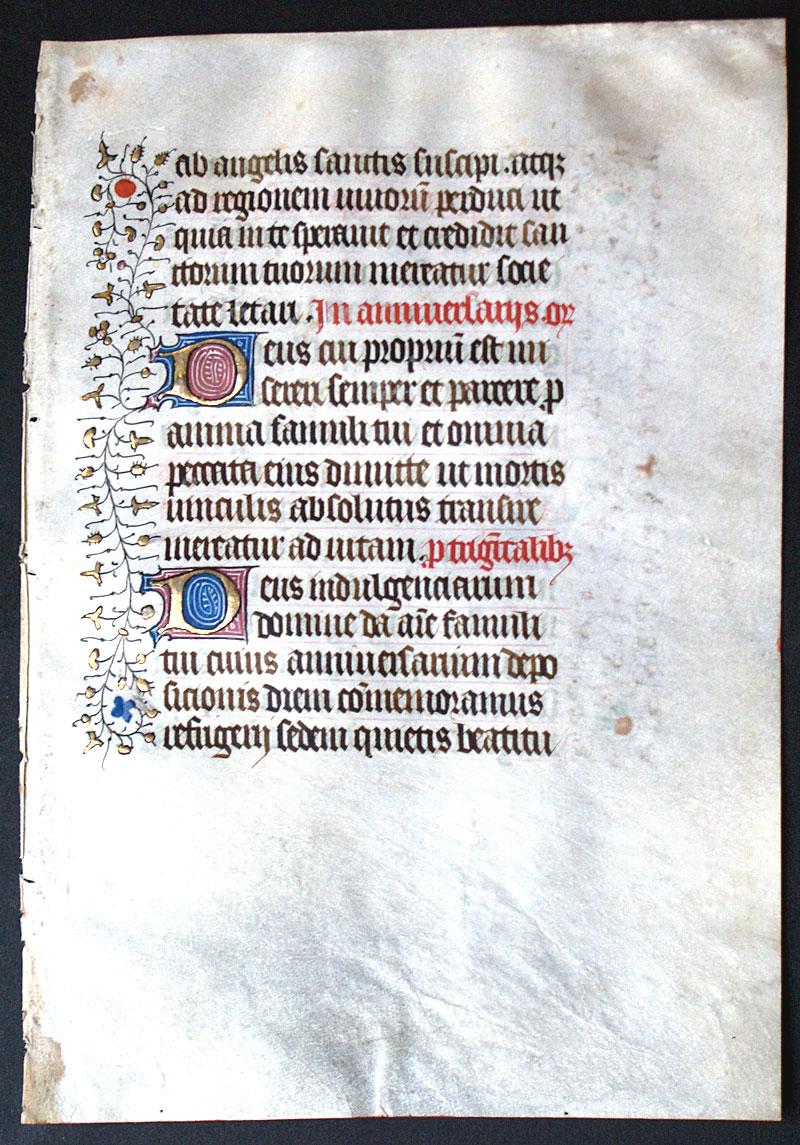 ab angelis sanctis suscipi. atqꝫ
ad regionem uiuorū perduci ut
quia in te sperauit et credidit san
ctorum tuorum mereatur socie
tate letari. In anniuersarijs. or̄
Deus cui propriū est mi
sereri semper et parcere ꝓ
anima famuli tui et omnia
peccata eius dimitte ut mortis
uinculis absolutus transire
mereatur ad uitam. ꝓ trig̅talibꝫ
Deus indulgenciarum
domine da aīe famuli
tui cuius anniuersarium depo
sicionis diem cōmemoramus
refrigerij sedem quietis beatitu